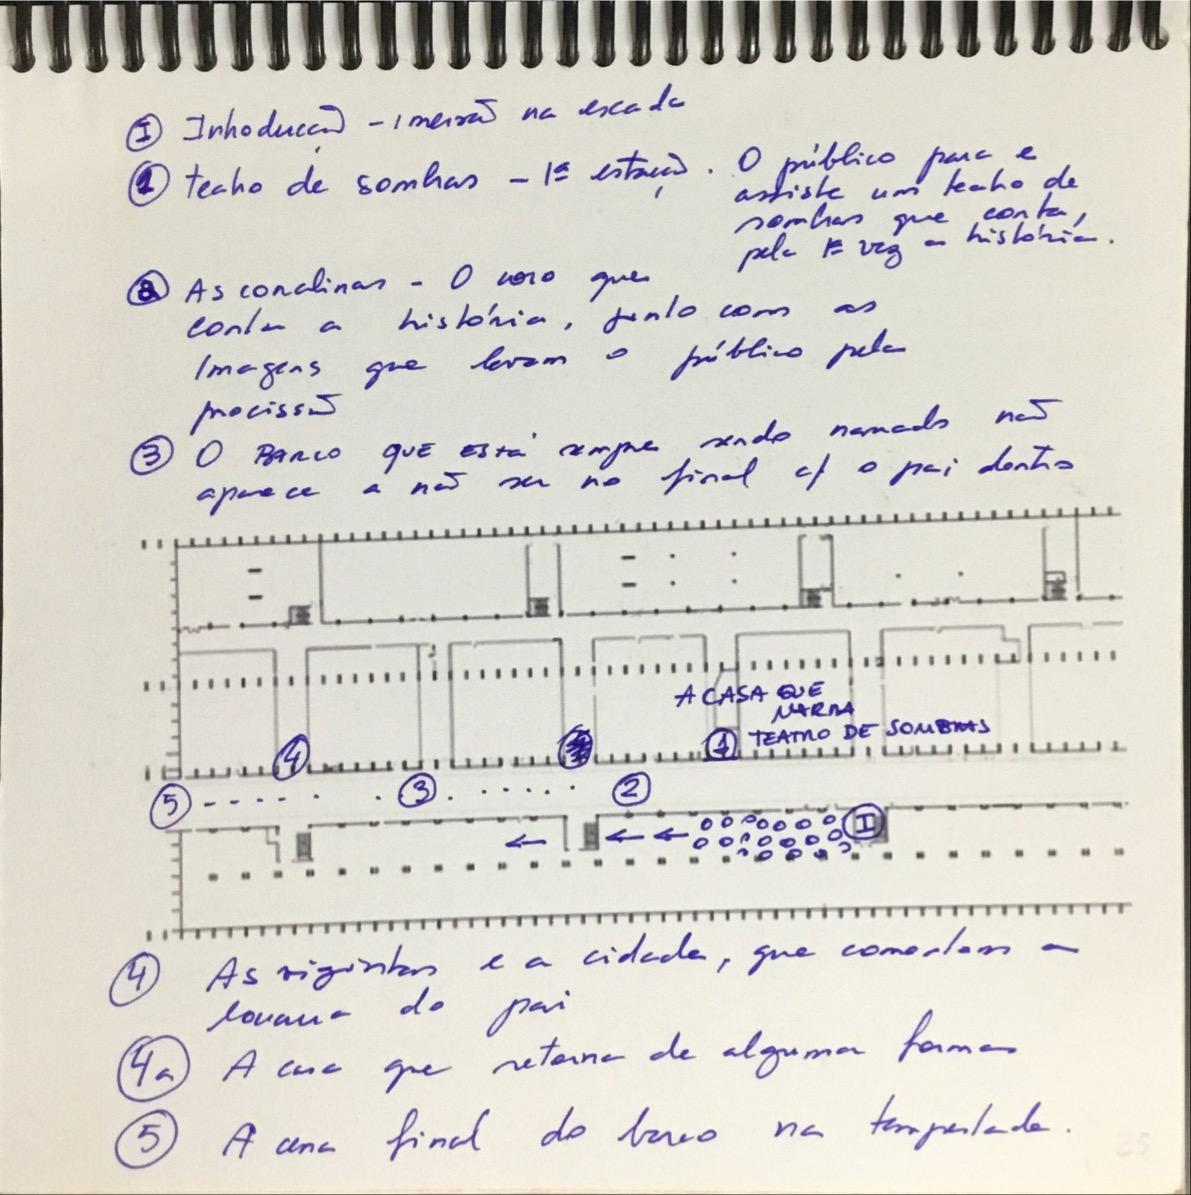 I Introdução - imersão na escada
1 teatro de sombras - 1ª estação. O público para e
assiste um teatro de
sombras que conta,
pela 1ª vez a história.
2 As conalinas - O coro que
conta a história, junto com as
Imagens que levam o público pela
procissão
3 O BARCO QUE ESTÁ sempre sendo narrado não
aparece a não ser no final c/ o pai dentro
A CASA QUE
NARRA
1 TEATRO DE SOMBRAS
4
5 3 2
I
4 As vizinhas e a cidade, que comentam a
loucura do pai
4a A casa que retorna de alguma forma
5 A cena final do barco na tempestade.
25